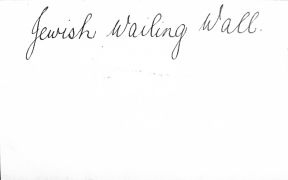 Jewish Wailing Wall.